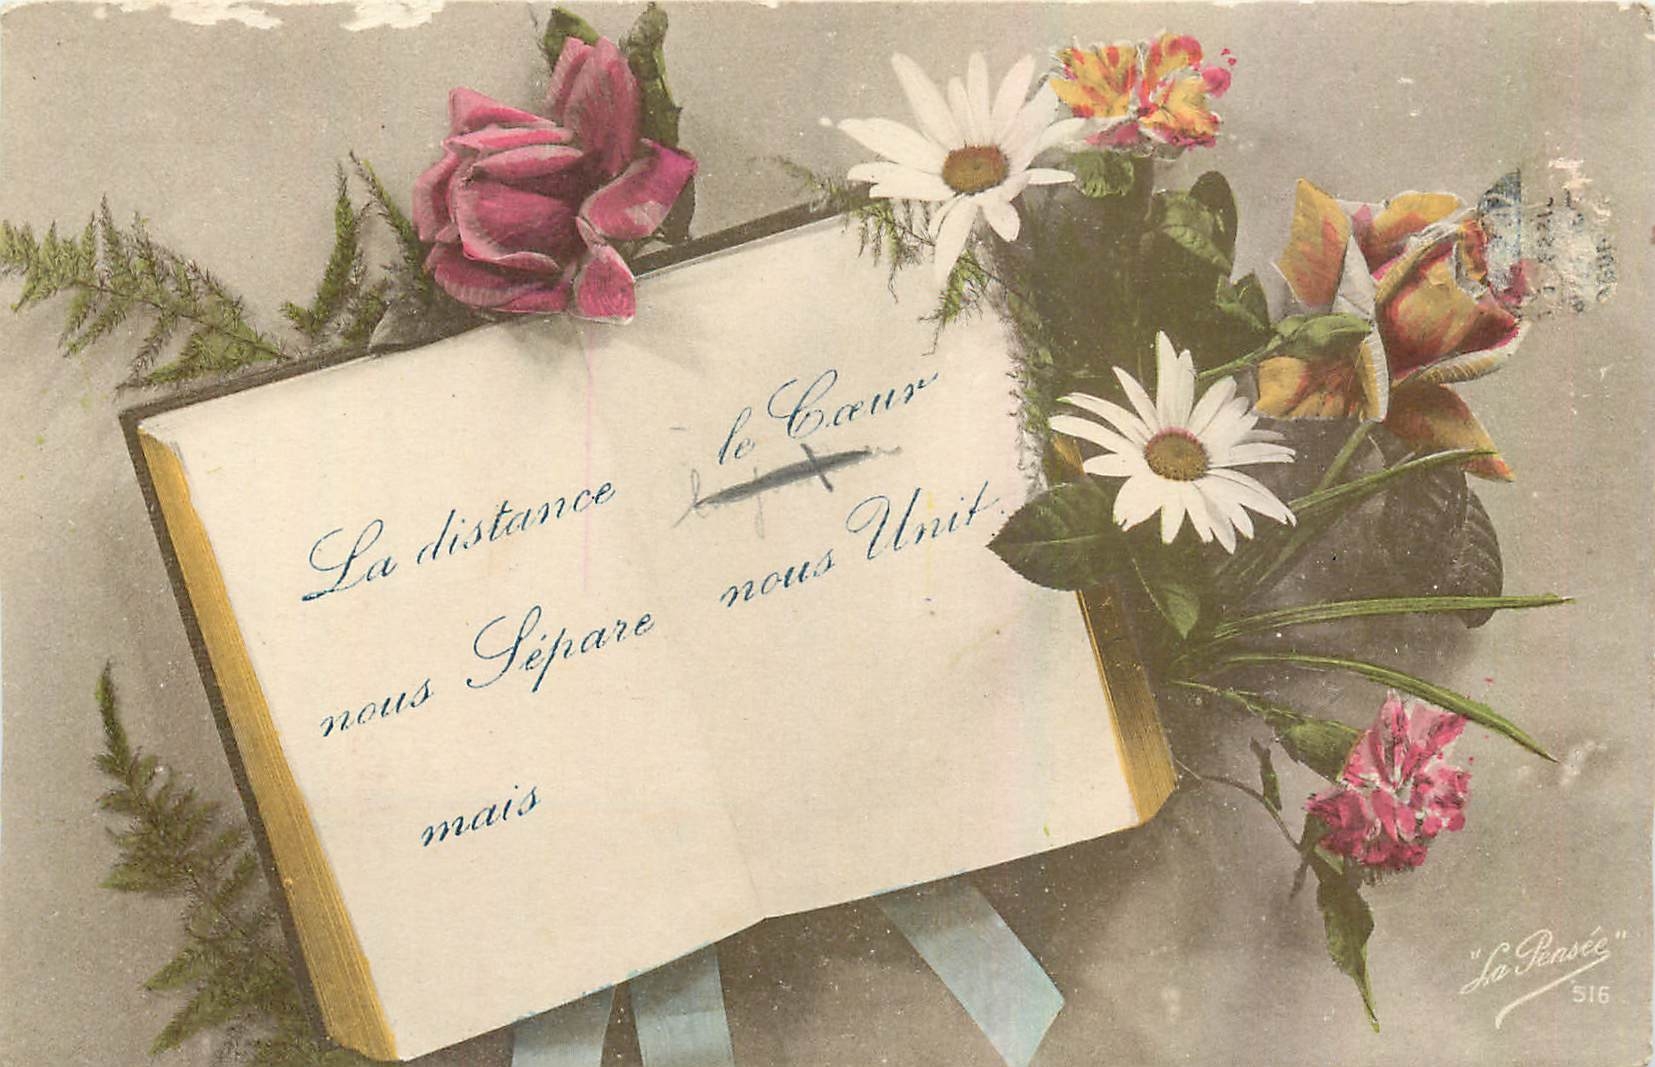 La distance
nous Sépare
mais
le Cœur
nous Unit.
"La Pensée"
516